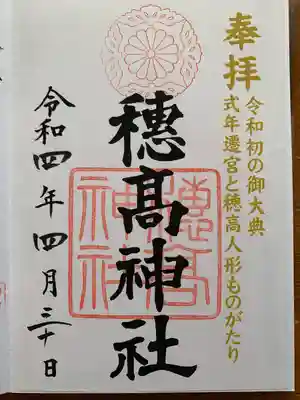 奉拝
令和初の御大典
式年遷宮と穂高人形ものがたり
穗髙神社
令和四年四月三十日
穗髙神社